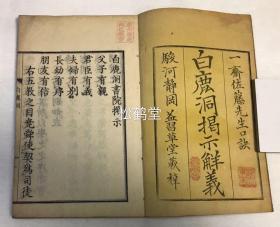 一齋佐藤先生口訣
白鹿洞揭示解義
駿河靜岡 益習草堂藏梓
白鹿洞書院揭示
父子有親
君臣有義
夫婦有別
長幼有序
朋友有信
右五教之目堯舜使契爲司徒
松鹤堂